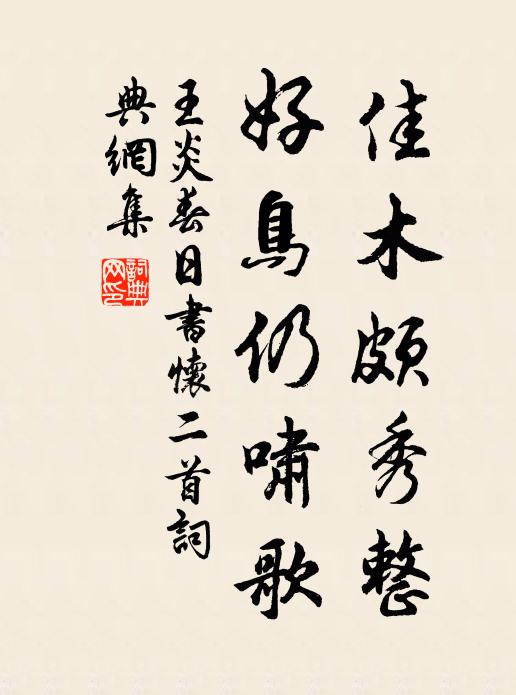 佳木頗秀整
好鳥仍嘯歌
王炎春日書懷二首詞
典網集
詞典
网印